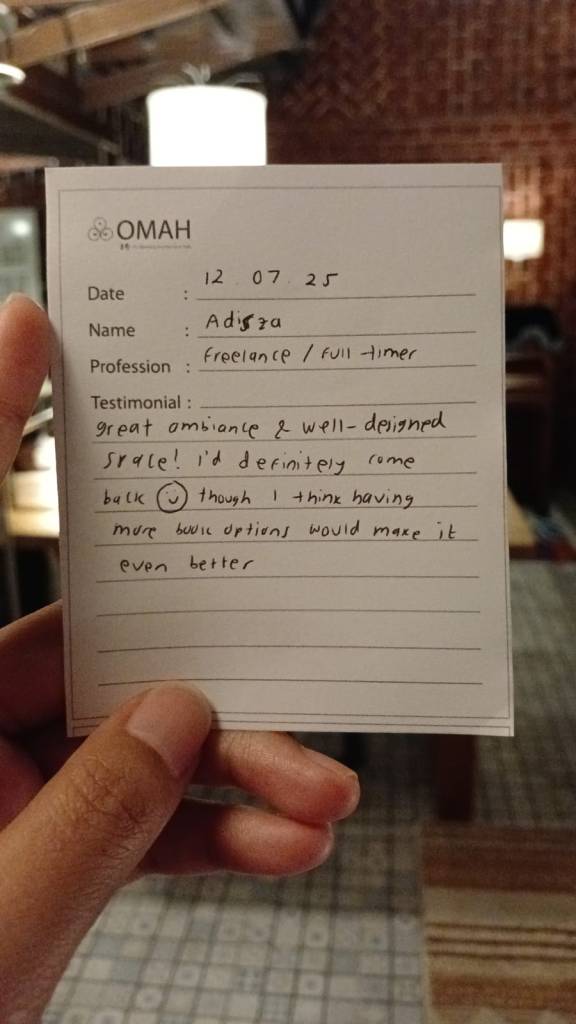 OMAH
Date : 12 . 07 . 25
Name : Adisza
Profession : Freelance / Full-timer
Testimonial :
great ambiance & well-designed
space! i'd definitely come
back though I think having
more book options would make it
even better